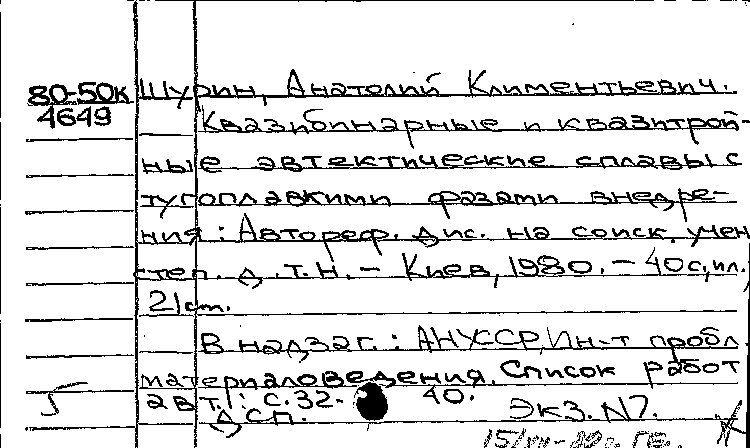 80-50к Шурин, Анатолий Климентьевич.
4649 Квазибинарные и квазитрой-
ные эвтектические сплавы с
тугоплавкими фазами внедре-
ния: Автореф. дис. на соиск. учен
степ. д.т.н. - Киев, 1980. - 40с, ил.
21см.
В надзаг.: АНУССР, Ин-т пробл.
материаловедения. Список работ
авт.: с.32-40.
ДСП. Экз. N7.